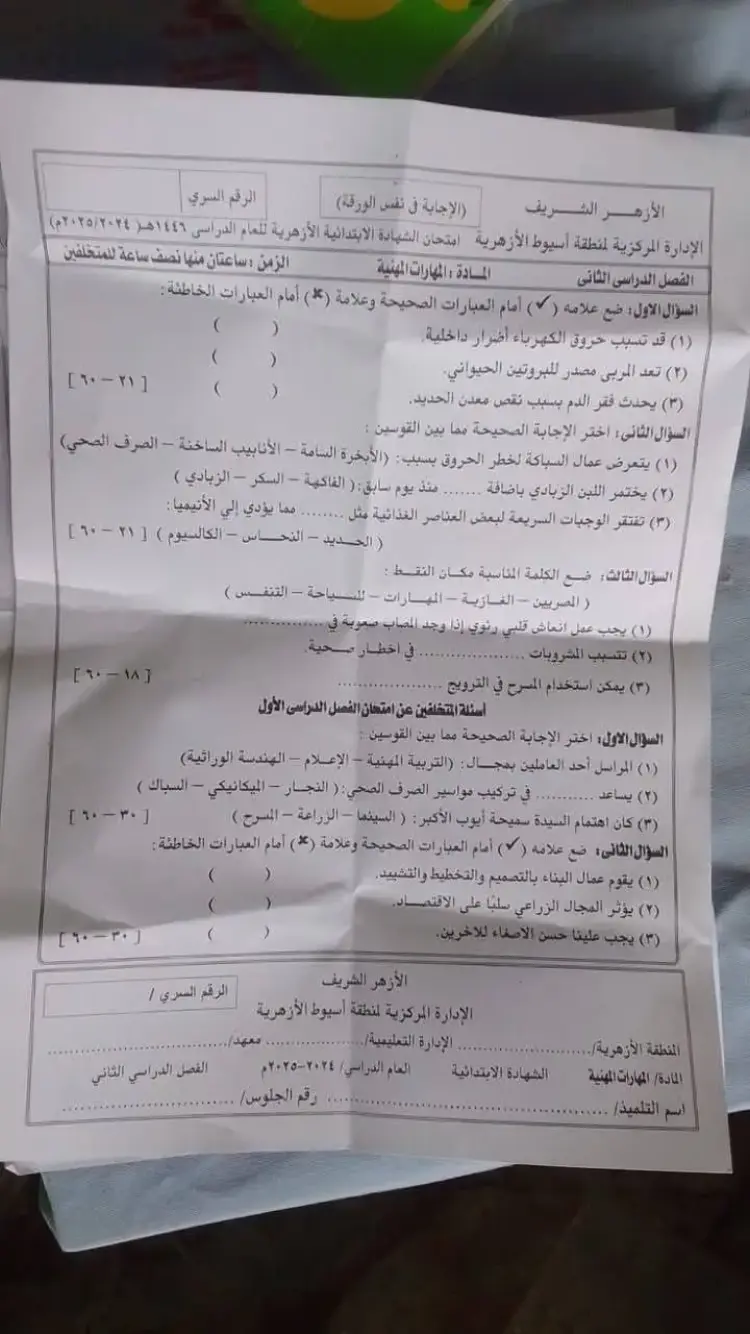 الأزهــر الشـــريف
(الإجابة في نفس الورقة)
الرقم السري
الإدارة المركزية لمنطقة أسيوط الأزهرية امتحان الشهادة الابتدائية الأزهرية للعام الدراسى ١٤٤٦هـ (٢٠٢٥/٢٠٢٤م)
الفصل الدراسى الثانى المــادة : المهارات المهنية الزمن : ساعتان منها نصف ساعة للمتخلفين
السؤال الاول: ضع علامه (✓) أمام العبارات الصحيحة وعلامة (✗) أمام العبارات الخاطئة:
(١) قد تسبب حروق الكهرباء أضرار داخلية. ( )
(٢) تعد المربى مصدر للبروتين الحيواني. ( )
(٣) يحدث فقر الدم بسبب نقص معدن الحديد. ( ) [ ٢١ – ٦٠ ]
السؤال الثانى: اختر الإجابة الصحيحة مما بين القوسين :
(١) يتعرض عمال السباكة لخطر الحروق بسبب: (الأبخرة السامة – الأنابيب الساخنة – الصرف الصحي)
(٢) يختمر اللبن الزبادي باضافة ....... منذ يوم سابق: ( الفاكهة – السكر – الزبادي )
(٣) تفتقر الوجبات السريعة لبعض العناصر الغذائية مثل ........ مما يؤدي إلي الأنيميا:
( الحــديد – النحــاس – الكالسيوم ) [ ٢١ – ٦٠ ]
السؤال الثالث: ضـع الكلمة المناسبة مكـان النقـط :
( المصريين – الغــازيـة – المهـارات – للسيـاحة – التنفـس )
(١) يجب عمل انعاش قلبي رئوي إذا وجد المصاب صعوبة في ...............
(٢) تتسبب المشروبات .................. في اخطـار صـحية.
(٣) يمكن استخدام المسرح في الترويج ................. [ ١٨ – ٦٠ ]
أسئلة المتخلفين عن امتحان الفصل الدراسى الأول
السؤال الاول: اختر الإجابة الصحيحة مما بين القوسين :
(١) المراسل أحد العاملين بمجـال: (التربية المهنية – الإعلام – الهندسة الوراثية)
(٢) يساعد .......... في تركيب مواسير الصرف الصحي: ( النجار – الميكانيكي – السباك )
(٣) كان اهتمام السيدة سميحة أيوب الأكبر: ( السينما – الزراعة – المسرح ) [ ٣٠ – ٦٠ ]
السؤال الثانى: ضع علامه (✓) أمام العبارات الصحيحة وعلامة (✗) أمام العبارات الخاطئة:
(١) يقوم عمال البناء بالتصميم والتخطيط والتشييد. ( )
(٢) يؤثر المجال الزراعي سلبًا على الاقتصـاد. ( )
(٣) يجب علينا حسن الاصغاء للاخرين. ( ) [ ٣٠ – ٦٠ ]
الأزهر الشريف
الرقم السري /
الإدارة المركزية لمنطقة أسيوط الأزهرية
المنطقة الأزهرية/....................... الإدارة التعليمية/................. معهد/..........................
المادة/ المهارات المهنية الشهادة الابتدائية العام الدراسي/ ٢٠٢٤-٢٠٢٥م الفصل الدراسي الثاني
اسم التلميذ/ .................................................. رقم الجلوس/ ..............................